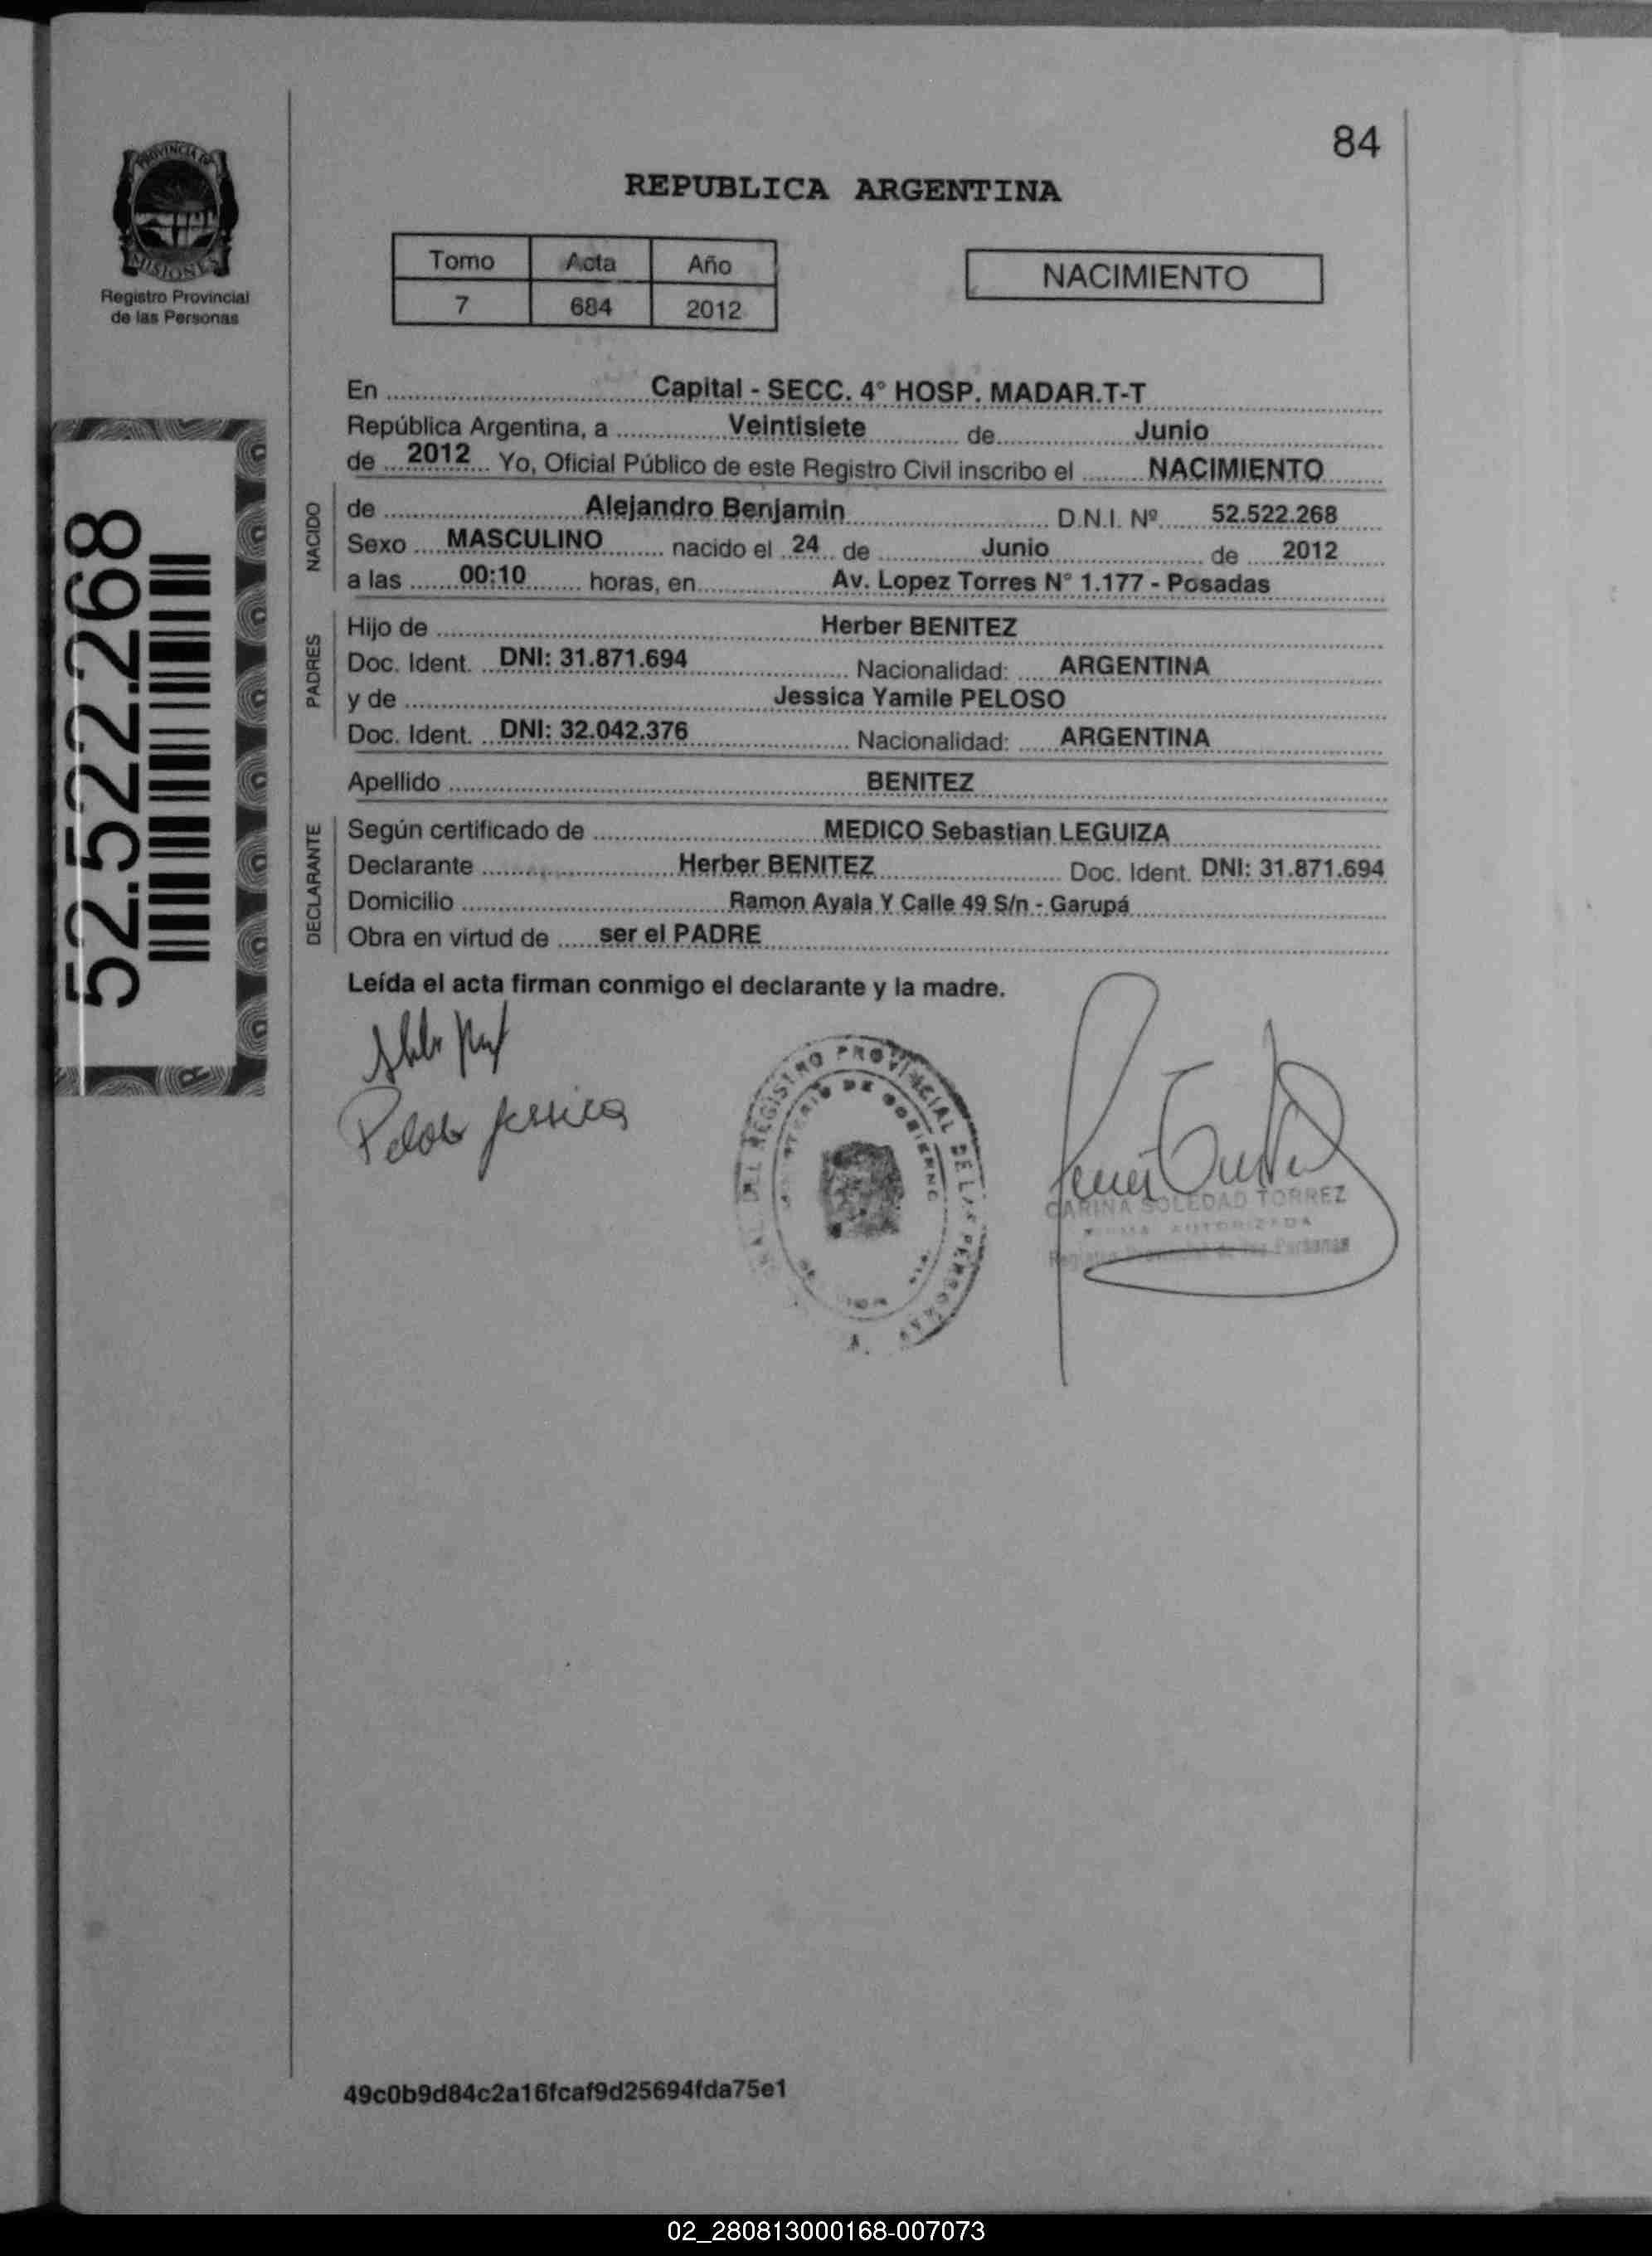 84
PROVINCIA DE
MISIONES
Registro Provincial
de las Personas
REPUBLICA ARGENTINA
Tomo Acta Año
7 684 2012
NACIMIENTO
52.522.268
En Capital - SECC. 4° HOSP. MADAR.T-T
República Argentina, a Veintisiete de Junio
de 2012 Yo, Oficial Público de este Registro Civil inscribo el NACIMIENTO
NACIDO
de Alejandro Benjamin D.N.I. Nº 52.522.268
Sexo MASCULINO nacido el 24 de Junio de 2012
a las 00:10 horas, en Av. Lopez Torres N° 1.177 - Posadas
PADRES
Hijo de Herber BENITEZ
Doc. Ident. DNI: 31.871.694 Nacionalidad: ARGENTINA
y de Jessica Yamile PELOSO
Doc. Ident. DNI: 32.042.376 Nacionalidad: ARGENTINA
Apellido BENITEZ
DECLARANTE
Según certificado de MEDICO Sebastian LEGUIZA
Declarante Herber BENITEZ Doc. Ident. DNI: 31.871.694
Domicilio Ramon Ayala Y Calle 49 S/n - Garupá
Obra en virtud de ser el PADRE
Leída el acta firman conmigo el declarante y la madre.
Peloso Jessica
DEL REGISTRO PROVINCIAL DE LAS PERSONAS
DE GOBIERNO
CARINA SOLEDAD TORREZ
FIRMA AUTORIZADA
Registro Provincial de las Personas
49c0b9d84c2a16fcaf9d25694fda75e1
02_280813000168-007073